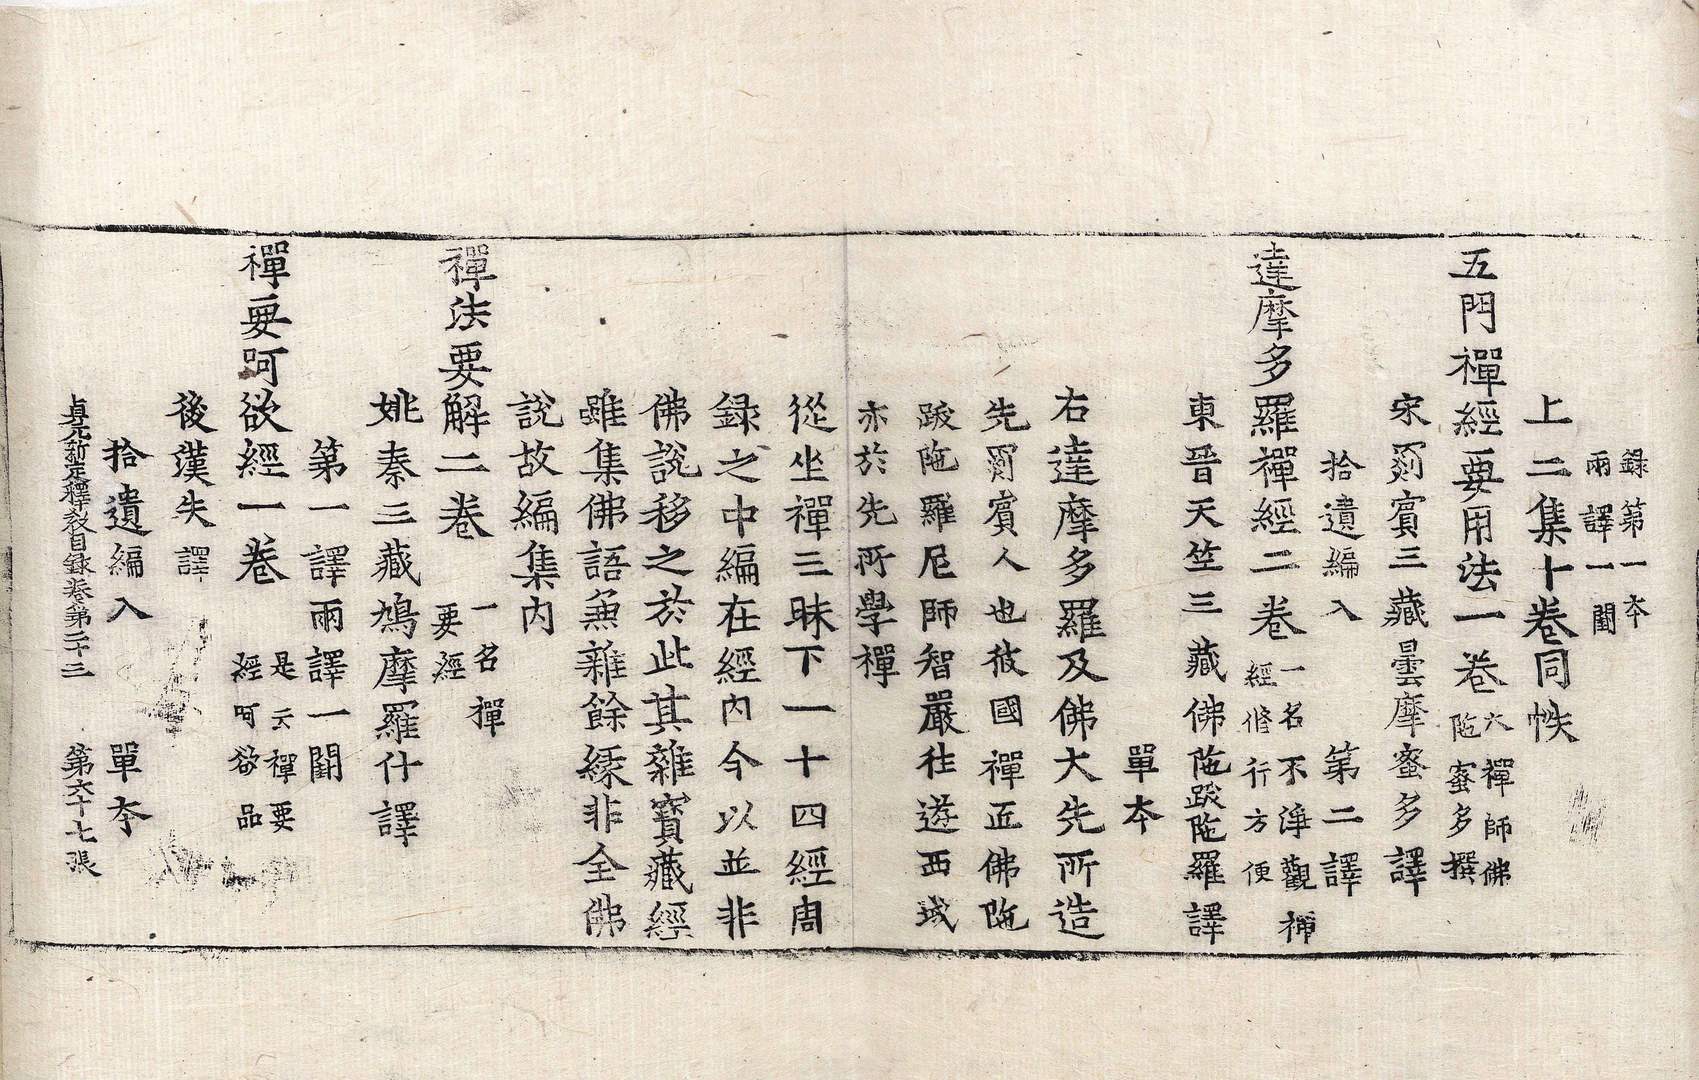 録第一本
兩譯一闕
上二集十卷同帙
五門禪經要用法一卷 大禪師佛陁蜜多撰
宋罽賓三藏曇摩蜜多譯
拾遺編入 第二譯
達摩多羅禪經二卷 一名不淨觀禪經修行方便
東晉天竺三藏佛陁跋陁羅譯
單本
右達摩多羅及佛大先所造
先罽賓人也彼國禪匠佛陁
跋陁羅尼師智嚴往遊西域
亦於先所學禪
從坐禪三昧下一十四經周
録之中編在經內今以並非
佛說移之於此其雜寶藏經
雖集佛語兼雜餘緣非全佛
說故編集內
禪法要解二卷 一名禪要經
姚秦三藏鳩摩羅什譯
第一譯兩譯一闕
禪要呵欲經一卷 是云禪要經呵欲品
後漢失譯
拾遺編入 單本
貞元新定釋教目録卷第二十三 第六十七張